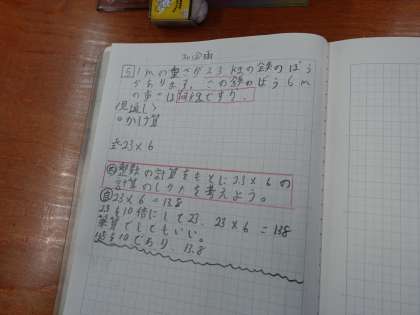 5 1mの重さが2.3kgの鉄のぼう
があります。この鉄のぼう6m
の重さは何kgですか。
見通し
○かけ算
式 2.3×6
整数の計算をもとに2.3×6の
計算のしかたを考えよう。
自 2.3×6=13.8
2.3を10倍にして23. 23×6=138
筆算でしてもいい。
÷10であり 13.8